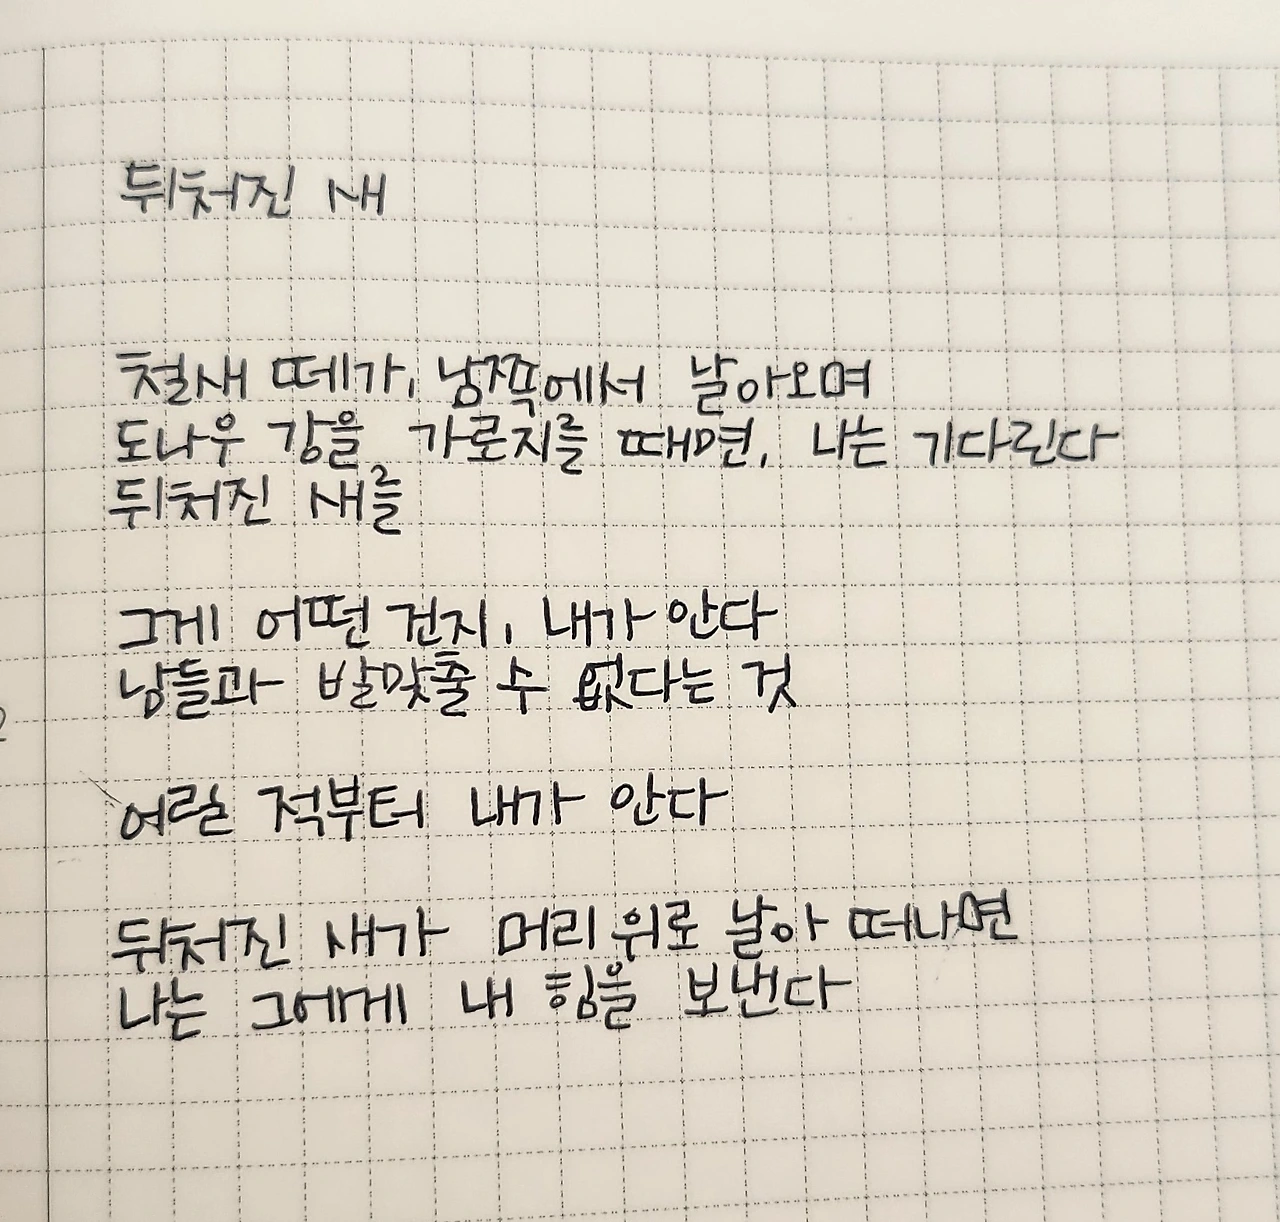 뒤처진 새
철새 떼가, 남쪽에서 날아오며
도나우 강을 가로지를 때면, 나는 기다린다
뒤처진 새를
그게 어떤 건지, 내가 안다
남들과 발맞출 수 없다는 것
어릴 적부터 내가 안다
뒤처진 새가 머리 위로 날아 떠나면
나는 그에게 내 힘을 보낸다